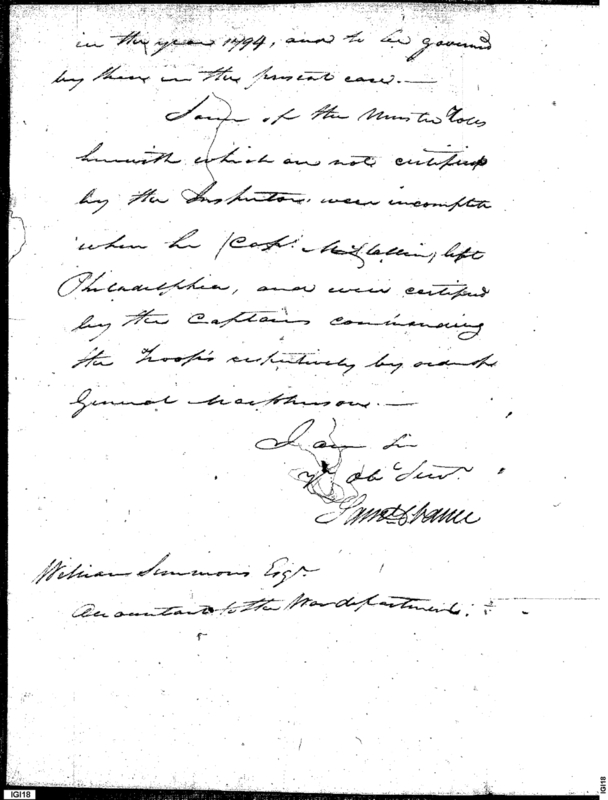 in the year 1794, and to be governed
by these in the present case.—
Some of the Muster Rolls
herewith which are not certified
by the Inspector were incomplete
when he (Capt. McClallin) left
Philadelphia, and were certified
by the Captains commanding
the Troops respectively by order of
General Macpherson.—
I am Sir
Yr obt Servt.
William Simmons Esqr.
Accountant to the War department.
IGI18
IGI18